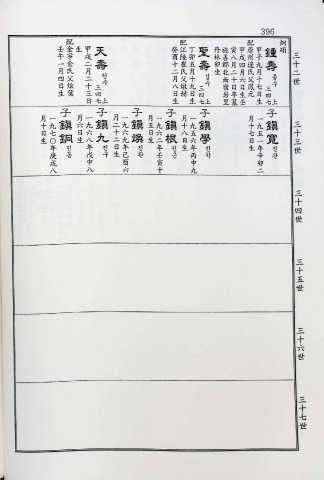 396
三十二世
鍾壽 종수 三○四 上
甲子九月十七日生
甲戌四月六日生
寅八月二十日卒墓
丹林卯生
聖壽 성수 三○七 上
丁卯五月十九日生
配江陵崔氏父
癸酉十二月八日生
天壽 천수 三○四 上
甲戌二月二十三日
生
配金寧金氏父炫葉
壬午一月四日生
三十三世
子鎭寬 진관
一九五一年辛卯二
月十七日生
子鎭學 진학
一九五六年丙申九
月十八日生
子鎭根 진근
一九六二年壬寅十
月五日生
子鎭煥 진환
一九六九年己酉六
月二十二日生
子鎭九 진구
一九六八年戊申八
月六日生
子鎭銅 진동
一九七○年庚戌八
月十日生
三十四世
三十五世
三十六世
三十七世